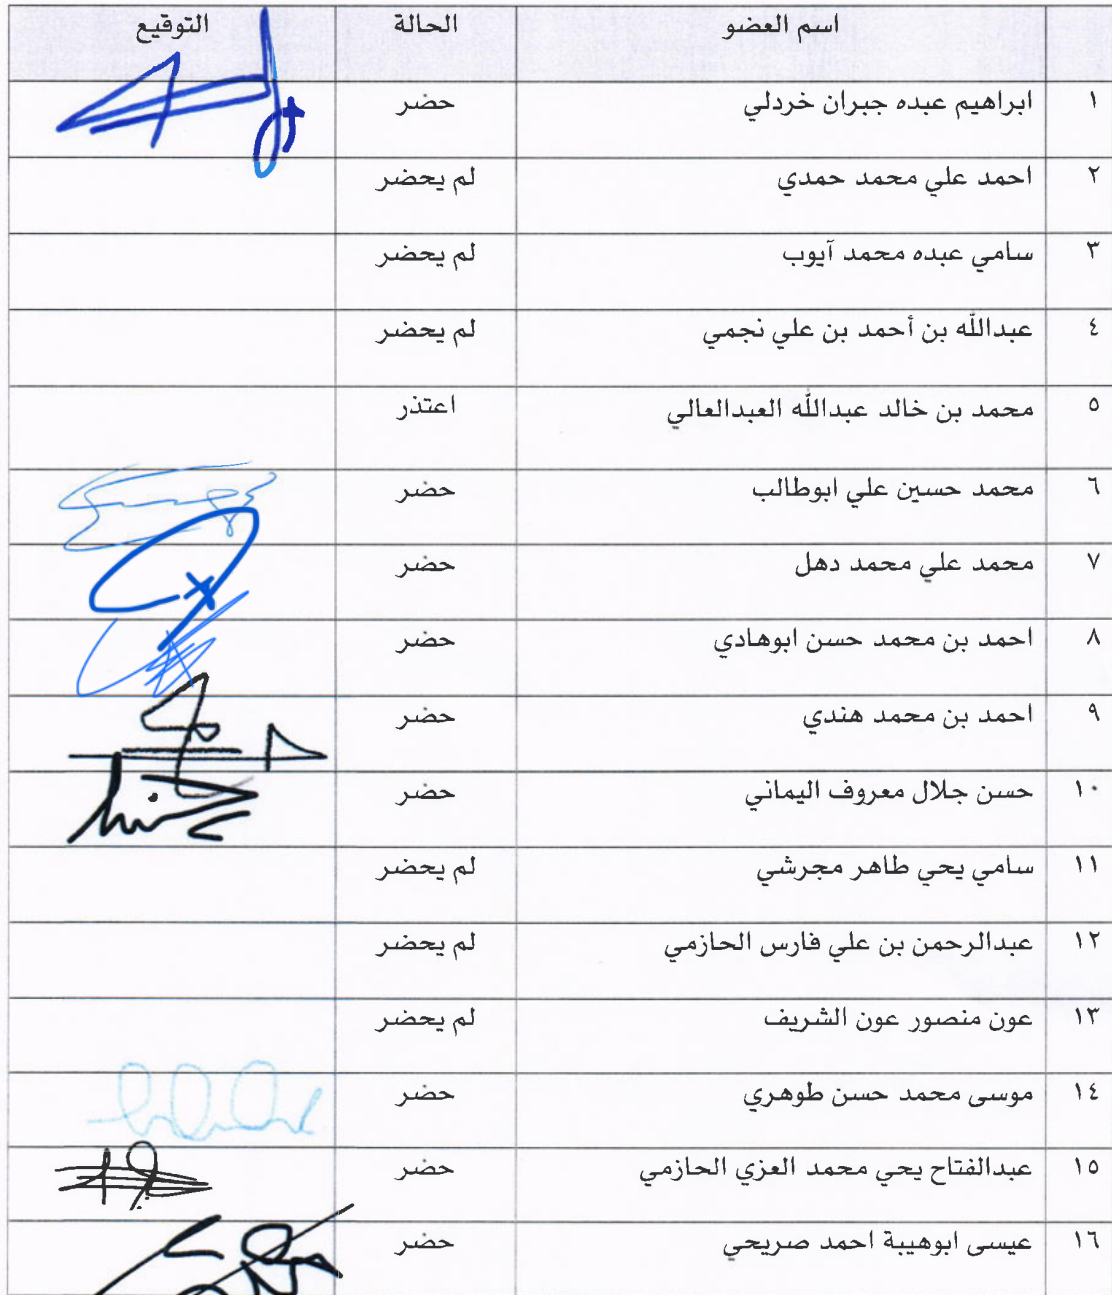 اسم العضو الحالة التوقيع
١ ابراهيم عبده جبران خردلي حضر
٢ احمد علي محمد حمدي لم يحضر
٣ سامي عبده محمد آيوب لم يحضر
٤ عبدالله بن أحمد بن علي نجمي لم يحضر
٥ محمد بن خالد عبدالله العبدالعالي اعتذر
٦ محمد حسين علي ابوطالب حضر
٧ محمد علي محمد دهل حضر
٨ احمد بن محمد حسن ابوهادي حضر
٩ احمد بن محمد هندي حضر
١٠ حسن جلال معروف اليماني حضر
١١ سامي يحي طاهر مجرشي لم يحضر
١٢ عبدالرحمن بن علي فارس الحازمي لم يحضر
١٣ عون منصور عون الشريف لم يحضر
١٤ موسى محمد حسن طوهري حضر
١٥ عبدالفتاح يحي محمد العزي الحازمي حضر
١٦ عيسى ابوهيبة احمد صريحي حضر